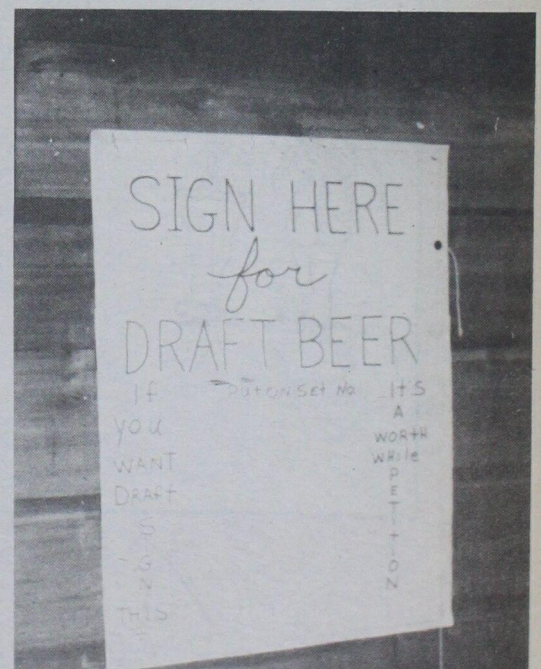 SIGN HERE
for
DRAFT BEER
If
YOU
WANT
DRAFT
S
I
G
N
THIS
PUT ON Set No.
It'S
A
WORtH
WHile
P
E
T
I
t
I
O
N